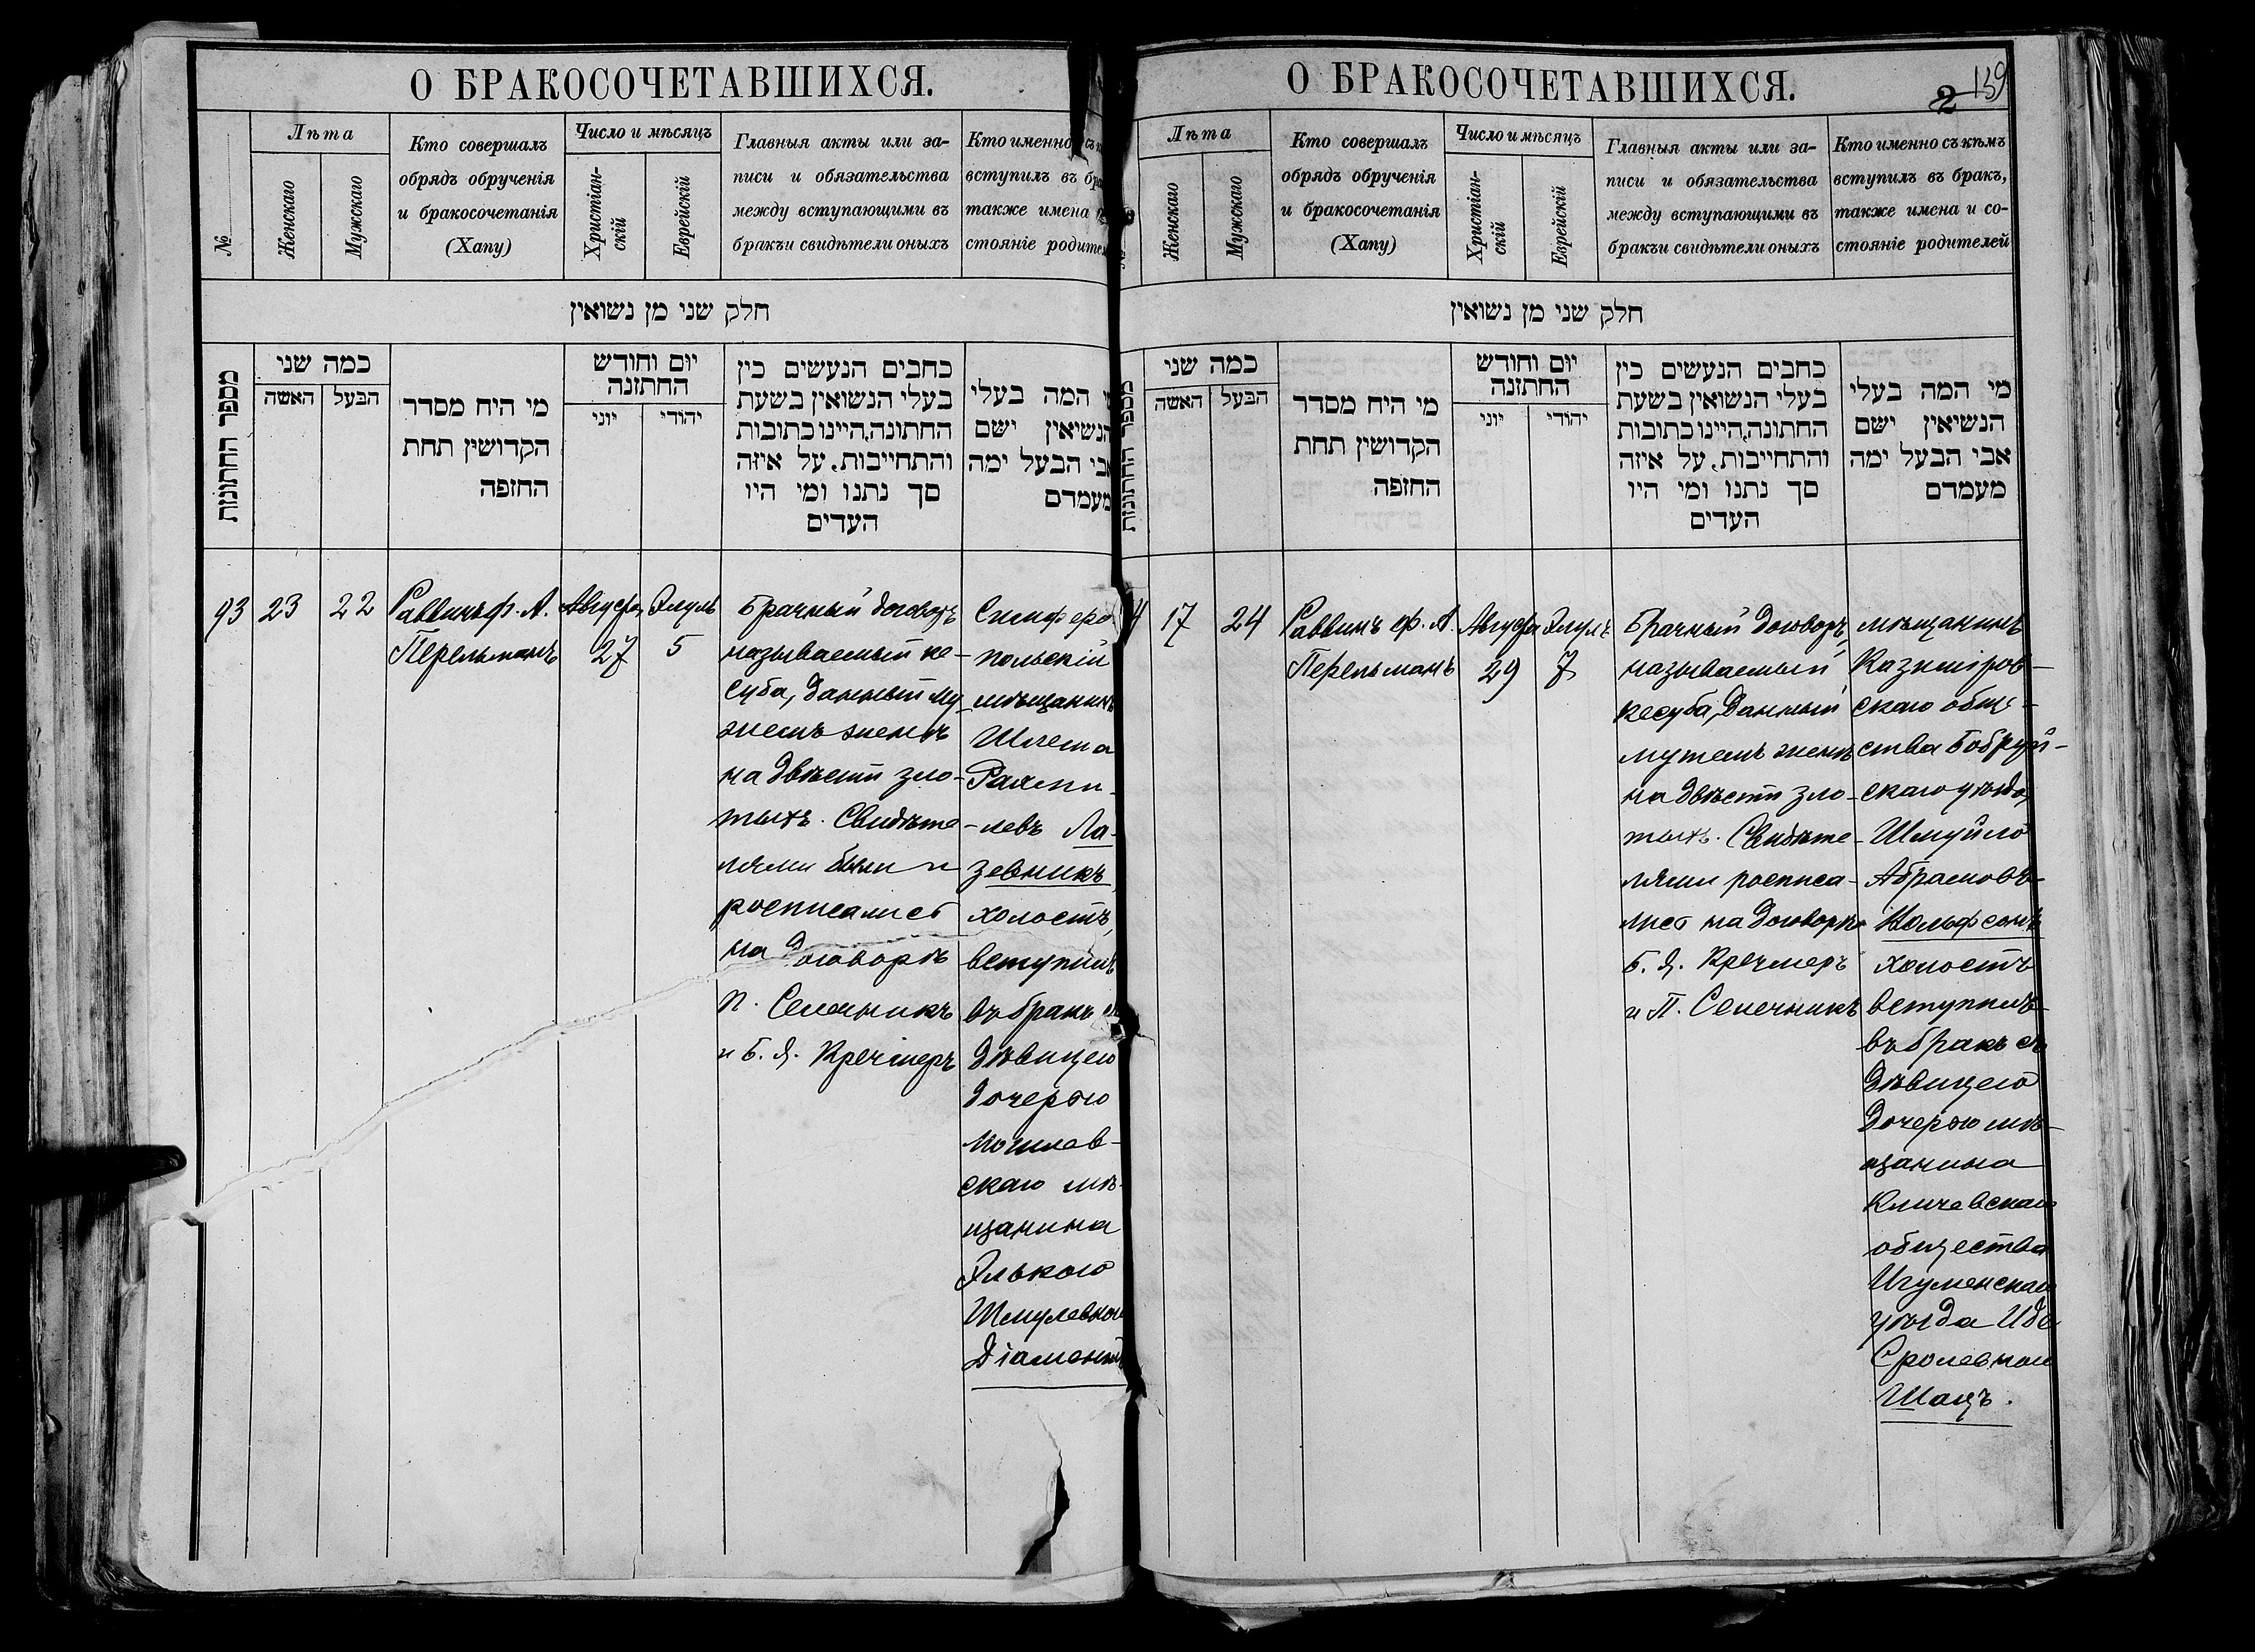 О БРАКОСОЧЕТАВШИХСЯ.
№
Лѣта
Женскаго
Мужскаго
Кто совершалъ
обрядъ обрученія
и бракосочетанія
(Хапу)
Число и мѣсяцъ
Христіан-
скій
Еврейскій
Главныя акты или за-
писи и обязательства
между вступающими въ
бракъи свидѣтели оныхъ
Кто именно съ
вступилъ въ бра
также имена
стояніе родител
חלק שני מן נשואין
מספר החתונות
כמה שני
האשה
הבעל
מי היח מסדר
הקדושין תחת
החופה
יום וחודש
החתונה
יוני
יהודי
כחבים הנעשים כין
בעלי הנשואין בשעת
החתונה,היינו כתובות
והתחייבות. על איזה
סך נתנו ומי היו
העדים
המה בעלי
הנשיאין ישם
אבי הבעל ימה
מעמדם
93
23
22
Раввинъ ф. А.
Перельманъ
Августа
27
Элуль
5
Брачный договоръ
называемый ке-
суба, данный му-
жемъ женѣ
на двѣсти зло-
тыхъ. Свидѣте-
лями были и
росписались
на договорѣ
П. Семечникъ
и Б. Я. Кречмеръ
Симферо
польскій
мѣщанинъ
Шлема
Рахми-
левъ Ла-
зевникъ,
холостъ,
вступилъ
въ бракъ съ
дѣвицею
дочерью
могилев-
скаго мѣ-
щанина
Элькою
Шмулевною
Діаментъ
О БРАКОСОЧЕТАВШИХСЯ.
2
159
Лѣта
Женскаго
Мужскаго
Кто совершалъ
обрядъ обрученія
и бракосочетанія
(Хапу)
Число и мѣсяцъ
Христіан-
скій
Еврейскій
Главныя акты или за-
писи и обязательства
между вступающими въ
бракъи свидѣтели оныхъ
Кто именно съ кѣмъ
вступилъ въ бракъ,
также имена и со-
стояніе родителей
חלק שני מן נשואין
מספר החתונות
כמה שני
האשה
הבעל
מי היח מסדר
הקדושין תחת
החופה
יום וחודש
החתונה
יוני
יהודי
כחבים הנעשים כין
בעלי הנשואין בשעת
החתונה,היינו כתובות
והתחייבות. על איזה
סך נתנו ומי היו
העדים
מי המה בעלי
הנשיאין ישם
אבי הבעל ימה
מעמדם
4
17
24
Раввинъ ф. А.
Перельманъ
Августа
29
Элуль
7
Брачный договоръ,
называемый
кесуба, данный
мужемъ женѣ
на двѣсти зло-
тыхъ. Свидѣте-
лями росписа-
лись на договорѣ
Б. Я. Кречмеръ
и П. Семечникъ
мѣщанинъ
Казиміров-
скаго обще-
ства Бобруй-
скаго уѣзда,
Шмуйло
Абрамовъ
Вольфсонъ
холостъ
вступилъ
въ бракъ съ
дѣвицею
дочерью мѣ-
щанина
Кличевскаго
общества
Игуменскаго
уѣзда Идо
Сролевною
Шацъ.